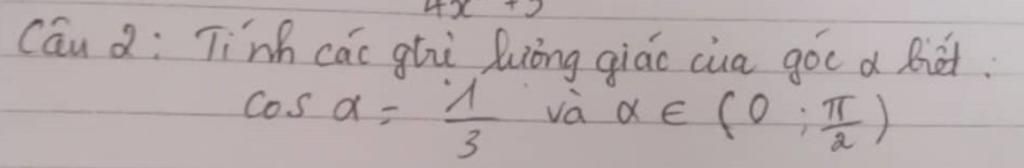 4x +5
Câu 2: Tính các gtrị lượng giác của góc α biết:
cos α = 1/3 và α ∈ (0; π/2)